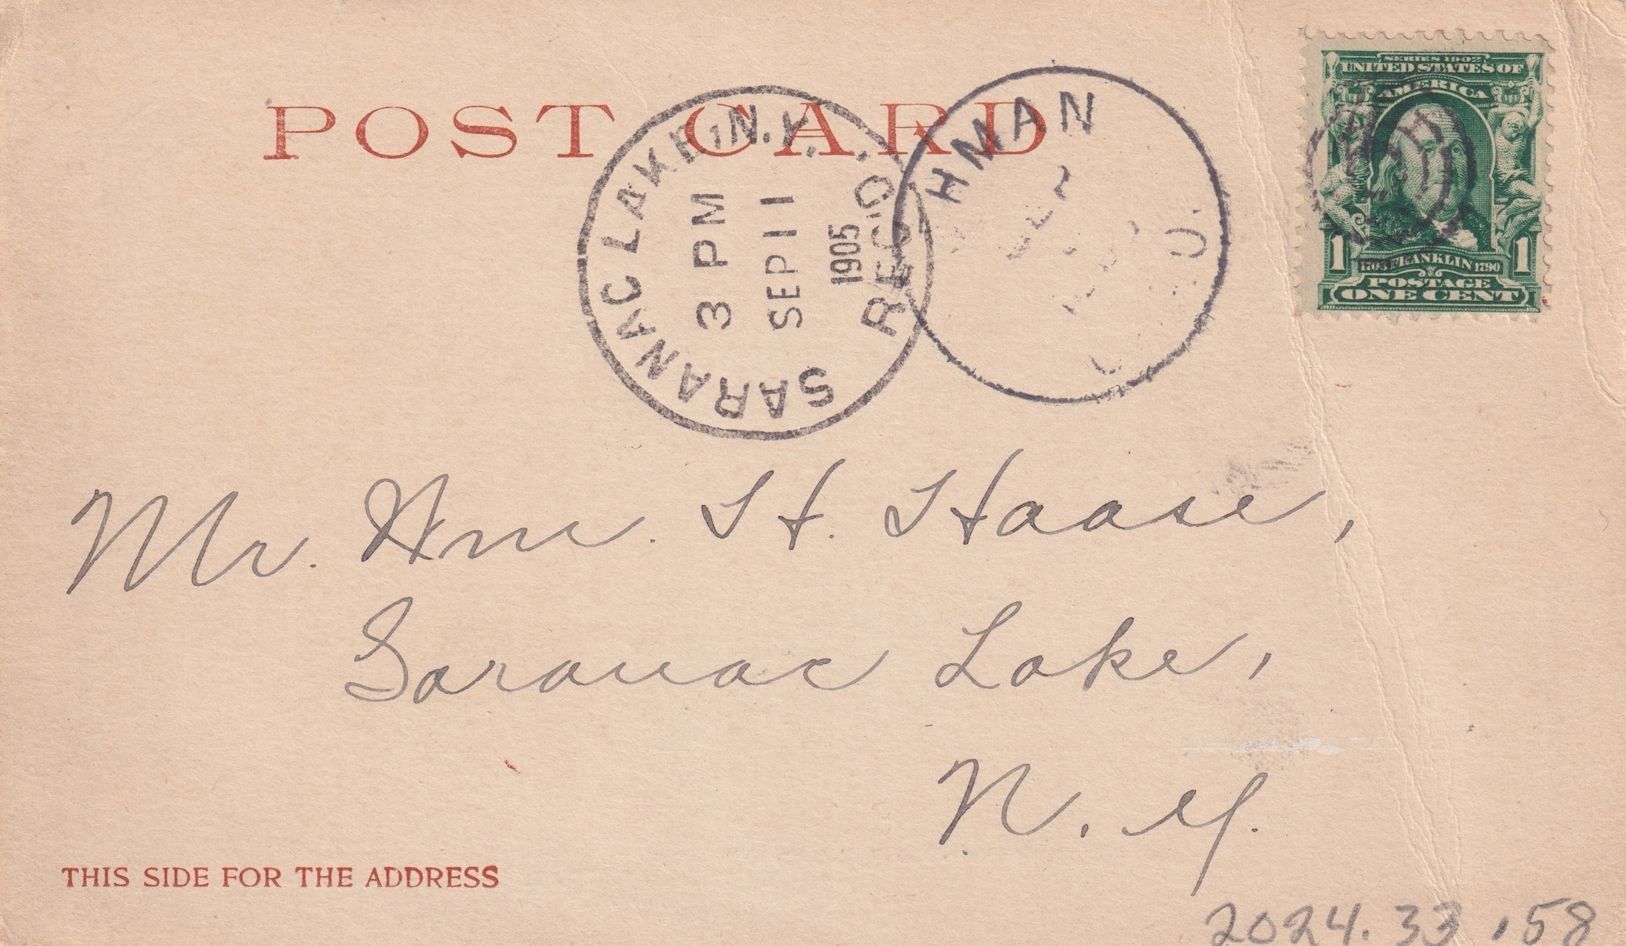 POST CARD
SARANAC LAKE, N.Y.
3 PM
SEP 11
1905
REC'D.
HMAN
SERIES 1902
UNITED STATES OF
AMERICA
1 1
1706 FRANKLIN 1790
POSTAGE
ONE CENT
Mr. Wm. H. Haase,
Saranac Lake,
N. Y.
THIS SIDE FOR THE ADDRESS
2024.33.58